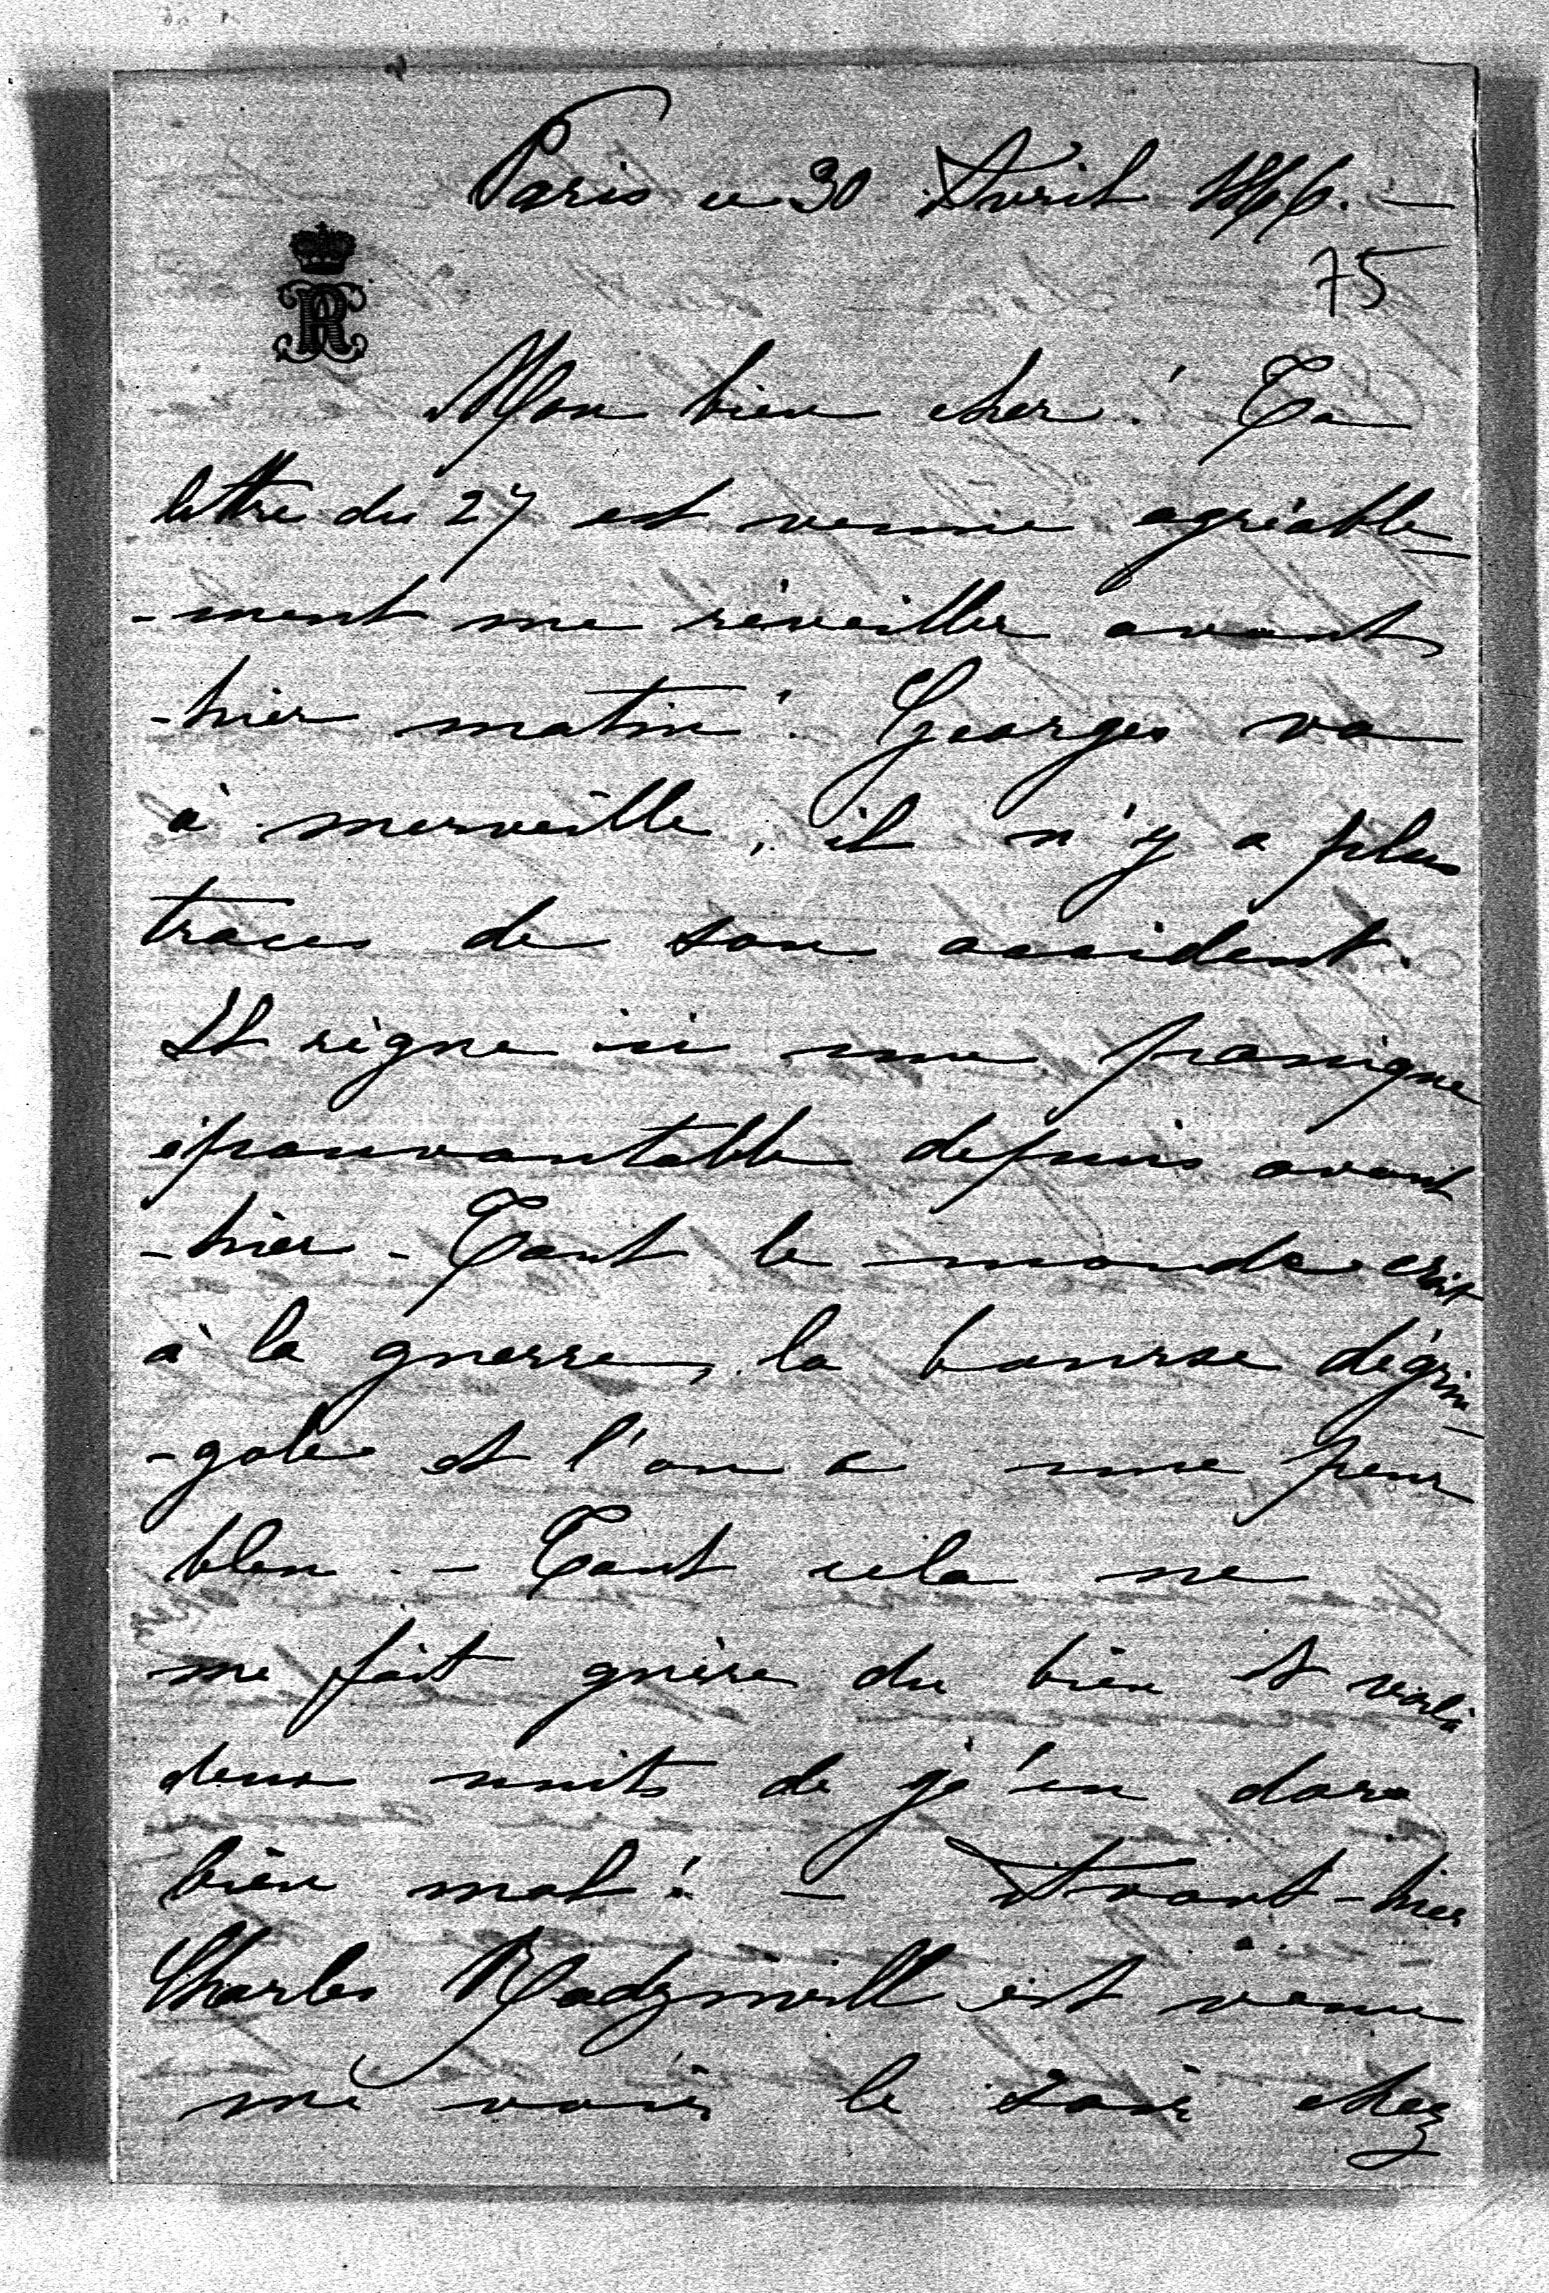 Paris ce 30 Avril 1866. —
75
R
Mon bien cher! Ta
lettre du 27 est venue agréable-
-ment me réveiller avant
-hier matin! Georges va
à merveille, il n'y a plus
traces de son accident.
Il règne ici une panique
épouvantable depuis avant
-hier - Tout le monde croit
à la guerre, la bourse dégrin-
-gole et l'on a une peur
bleue. - Tout cela ne
me fait guère du bien et voilà
deux nuits de j'en dors
bien mal! - Avant-hier
Charles Radziwill est venu
me voir le soir chez